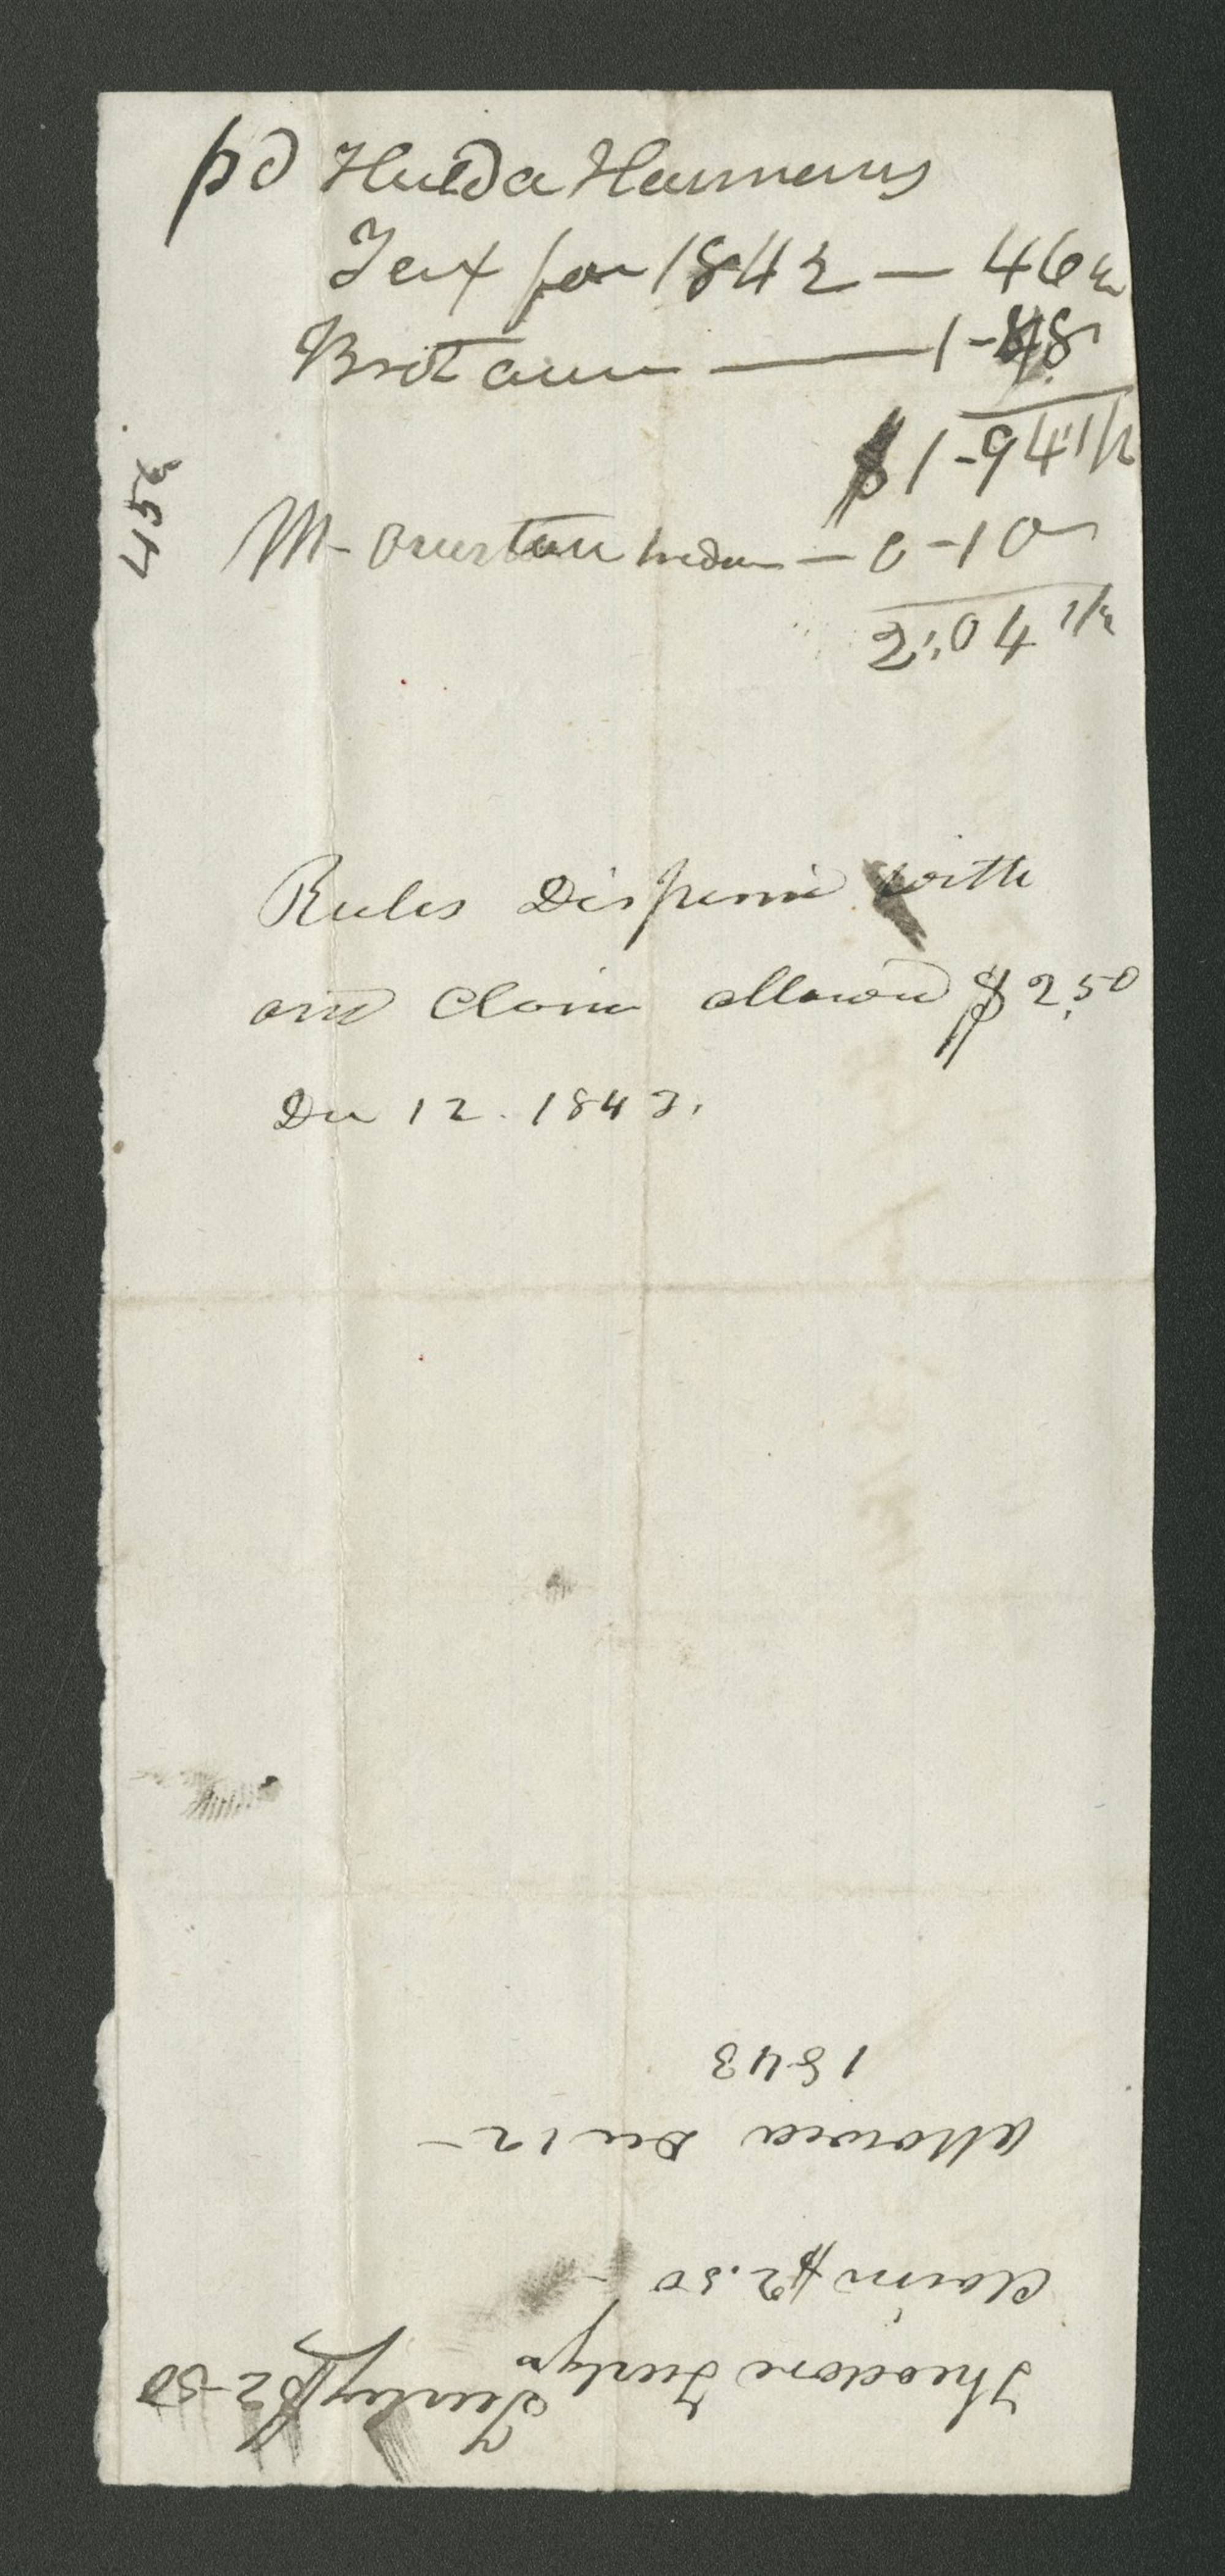 pd Hulda Harmans
Tax for 1842 — 46 1/2
Brot 1-48
$1-94 1/2
M- — 0-10
2.04 1/2
45 c
Rules Dispensd with
and Claim allowed $2,50
Dec 12. 1843.
Theodore Turly's
Claim $2.50 -
allowed Dec 12 -
1843
Turley $2-50